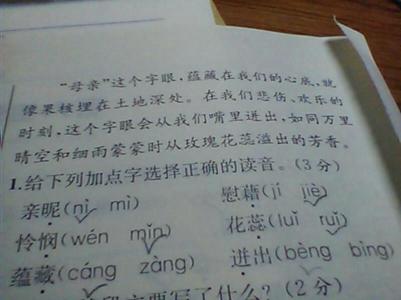 “母亲”这个字眼,蕴藏在我们的心底,就
像果核埋在土地深处。在我们悲伤、欢乐的
时刻,这个字眼会从我们嘴里迸出,如同万里
晴空和细雨蒙蒙时从玫瑰花蕊溢出的芳香。
1.给下列加点字选择正确的读音。(3分)
亲昵(nì mì) 慰藉(jí jiè)
怜悯(wén mǐn) 花蕊(luǐ ruǐ)
蕴藏(cáng zàng) 迸出(bèng bìng)
段主要写了什么?(2分)